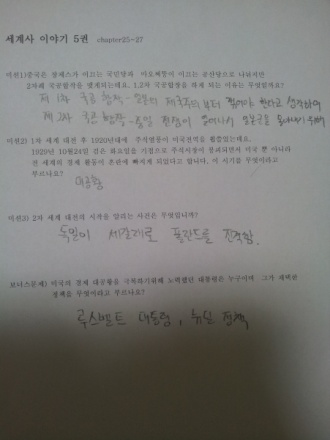 세계사 이야기 5권 chapter25~27
미션1)중국은 장제스가 이끄는 국민당과 마오쩌둥이 이끄는 공산당으로 나뉘지만
2차례 국공합작을 맺게되는데요. 1,2차 국공합작을 하게 되는 이유는 무엇일까요?
제 1차 국공 합작 - 제국주의 부터 한다고 생각하여
제 2차 국공 합작 - 중일 전쟁이 일어나서 일본군을 몰아내기 위해
미션2) 1차 세계 대전 후 1920년대에 주식열풍이 미국전역을 휩쓸었는데요.
1929년 10월24일 검은 화요일을 기점으로 주식시장이 붕괴하면서 미국 뿐 아니라
전 세계의 경제 활동이 혼란에 빠지게 되었다고 합니다. 이 시기를 무엇이라고
부르나요?
대공황
미션3) 2차 세계 대전의 시작을 알리는 사건은 무엇입니까?
독일이 세절제로 폴란드를 진격함.
보너스문제) 미국의 경제 대공황을 극복하기위해 노력했던 대통령은 누구이며 그가 채택한
정책을 무엇이라고 부르나요?
루스벨트 대통령, 뉴딜 정책